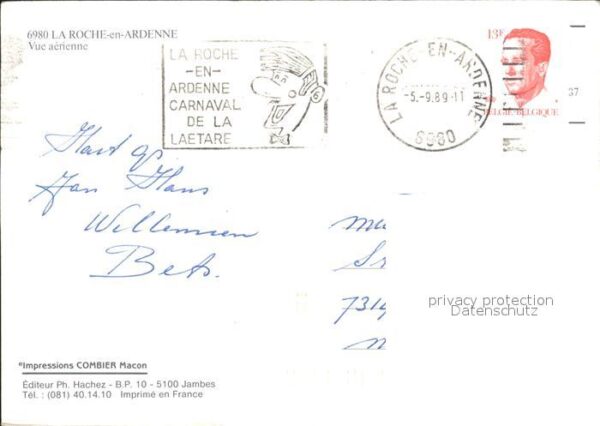 6980 LA ROCHE-en-ARDENNE
Vue aérienne
LA ROCHE
-EN-
ARDENNE
CARNAVAL
DE LA
LAETARE
LA ROCHE-EN-ARDENNE
-5.-9.89-11
6980
13F
37
BELGIË-BELGIQUE
Jan Hans
Willemien
Bets.
7314
privacy protection
Datenschutz
®Impressions COMBIER Macon
Éditeur Ph. Hachez - B.P. 10 - 5100 Jambes
Tél. : (081) 40.14.10 Imprimé en France